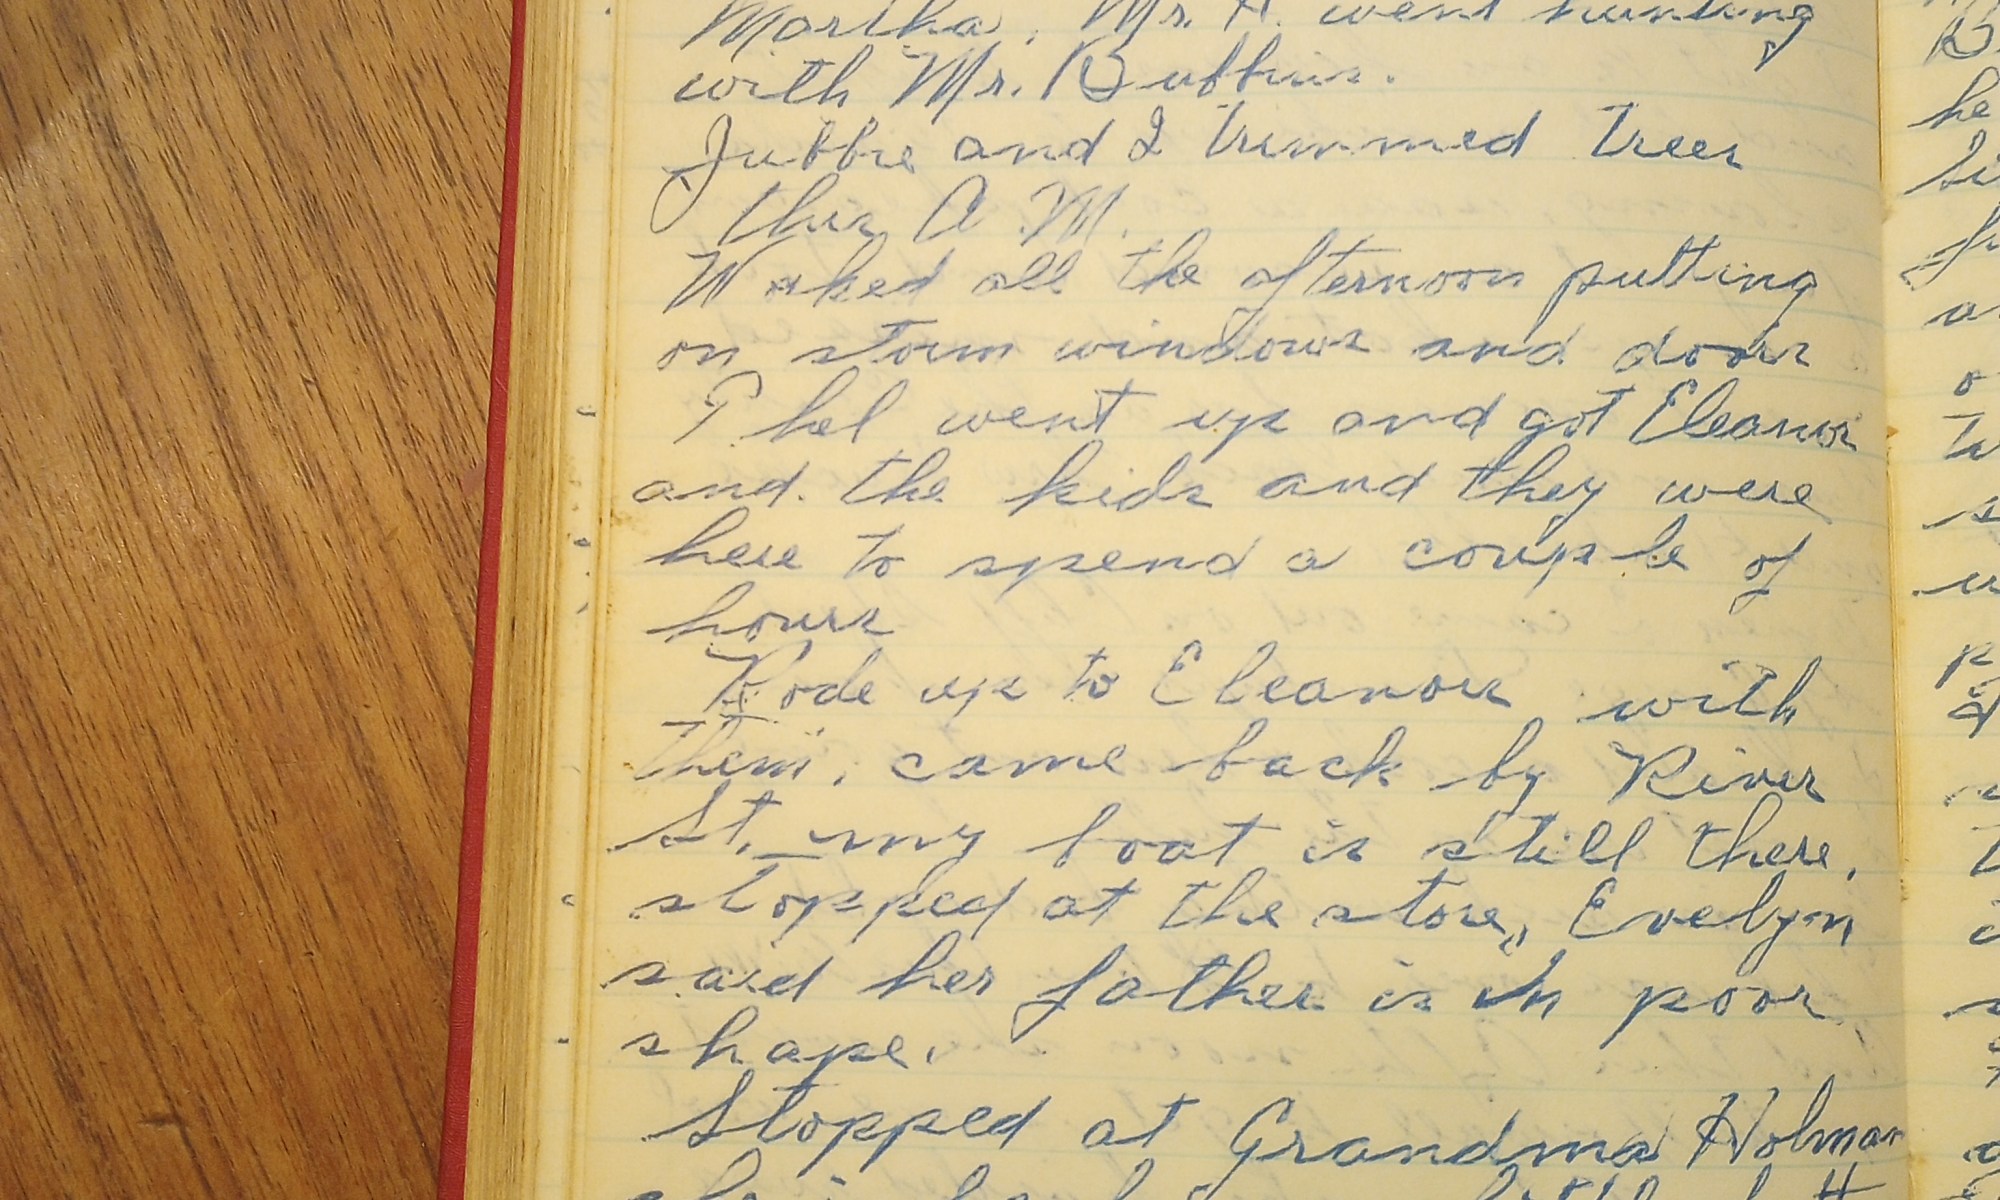 Martha, Mr. H. went hunting
with Mr. Bubbins.
Jubbie and I trimmed trees
this A.M.
Worked all the afternoon putting
on storm windows and doors
Phel went up and got Eleanor
and the kids and they were
here to spend a couple of
hours
Rode up to Eleanors with
them, came back by River
St. my boat is still there.
stopped at the store, Evelyn
said her father is in poor
shape.
Stopped at Grandma Holman